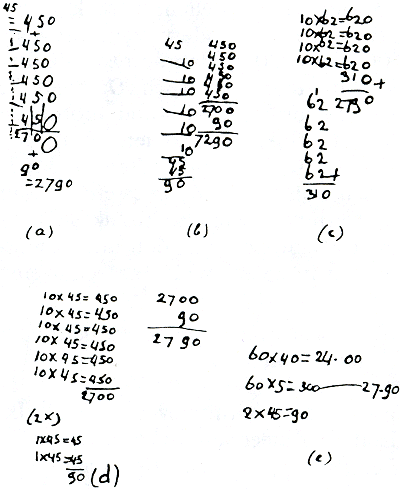 45
= 450
+
450
450
450
450
450
2700
+
90
= 2790
(a)
45 450
450
10 450
10 450
10 450
10 450
10 2700
10 90
10 7290
45
45
90
(b)
10×62=620
10×62=620
10×62=620
10×62=620
310+
2790
62
62
62
62
62+
310
(c)
10×45=450
10×45=450
10×45=450
10×45=450
10×45=450
10×45=450
2700
(2×)
1×45=45
1×45=45
90
2700
90
2790
(d)
60×40=24.00
60×5=300 27.90
2×45=90
(e)